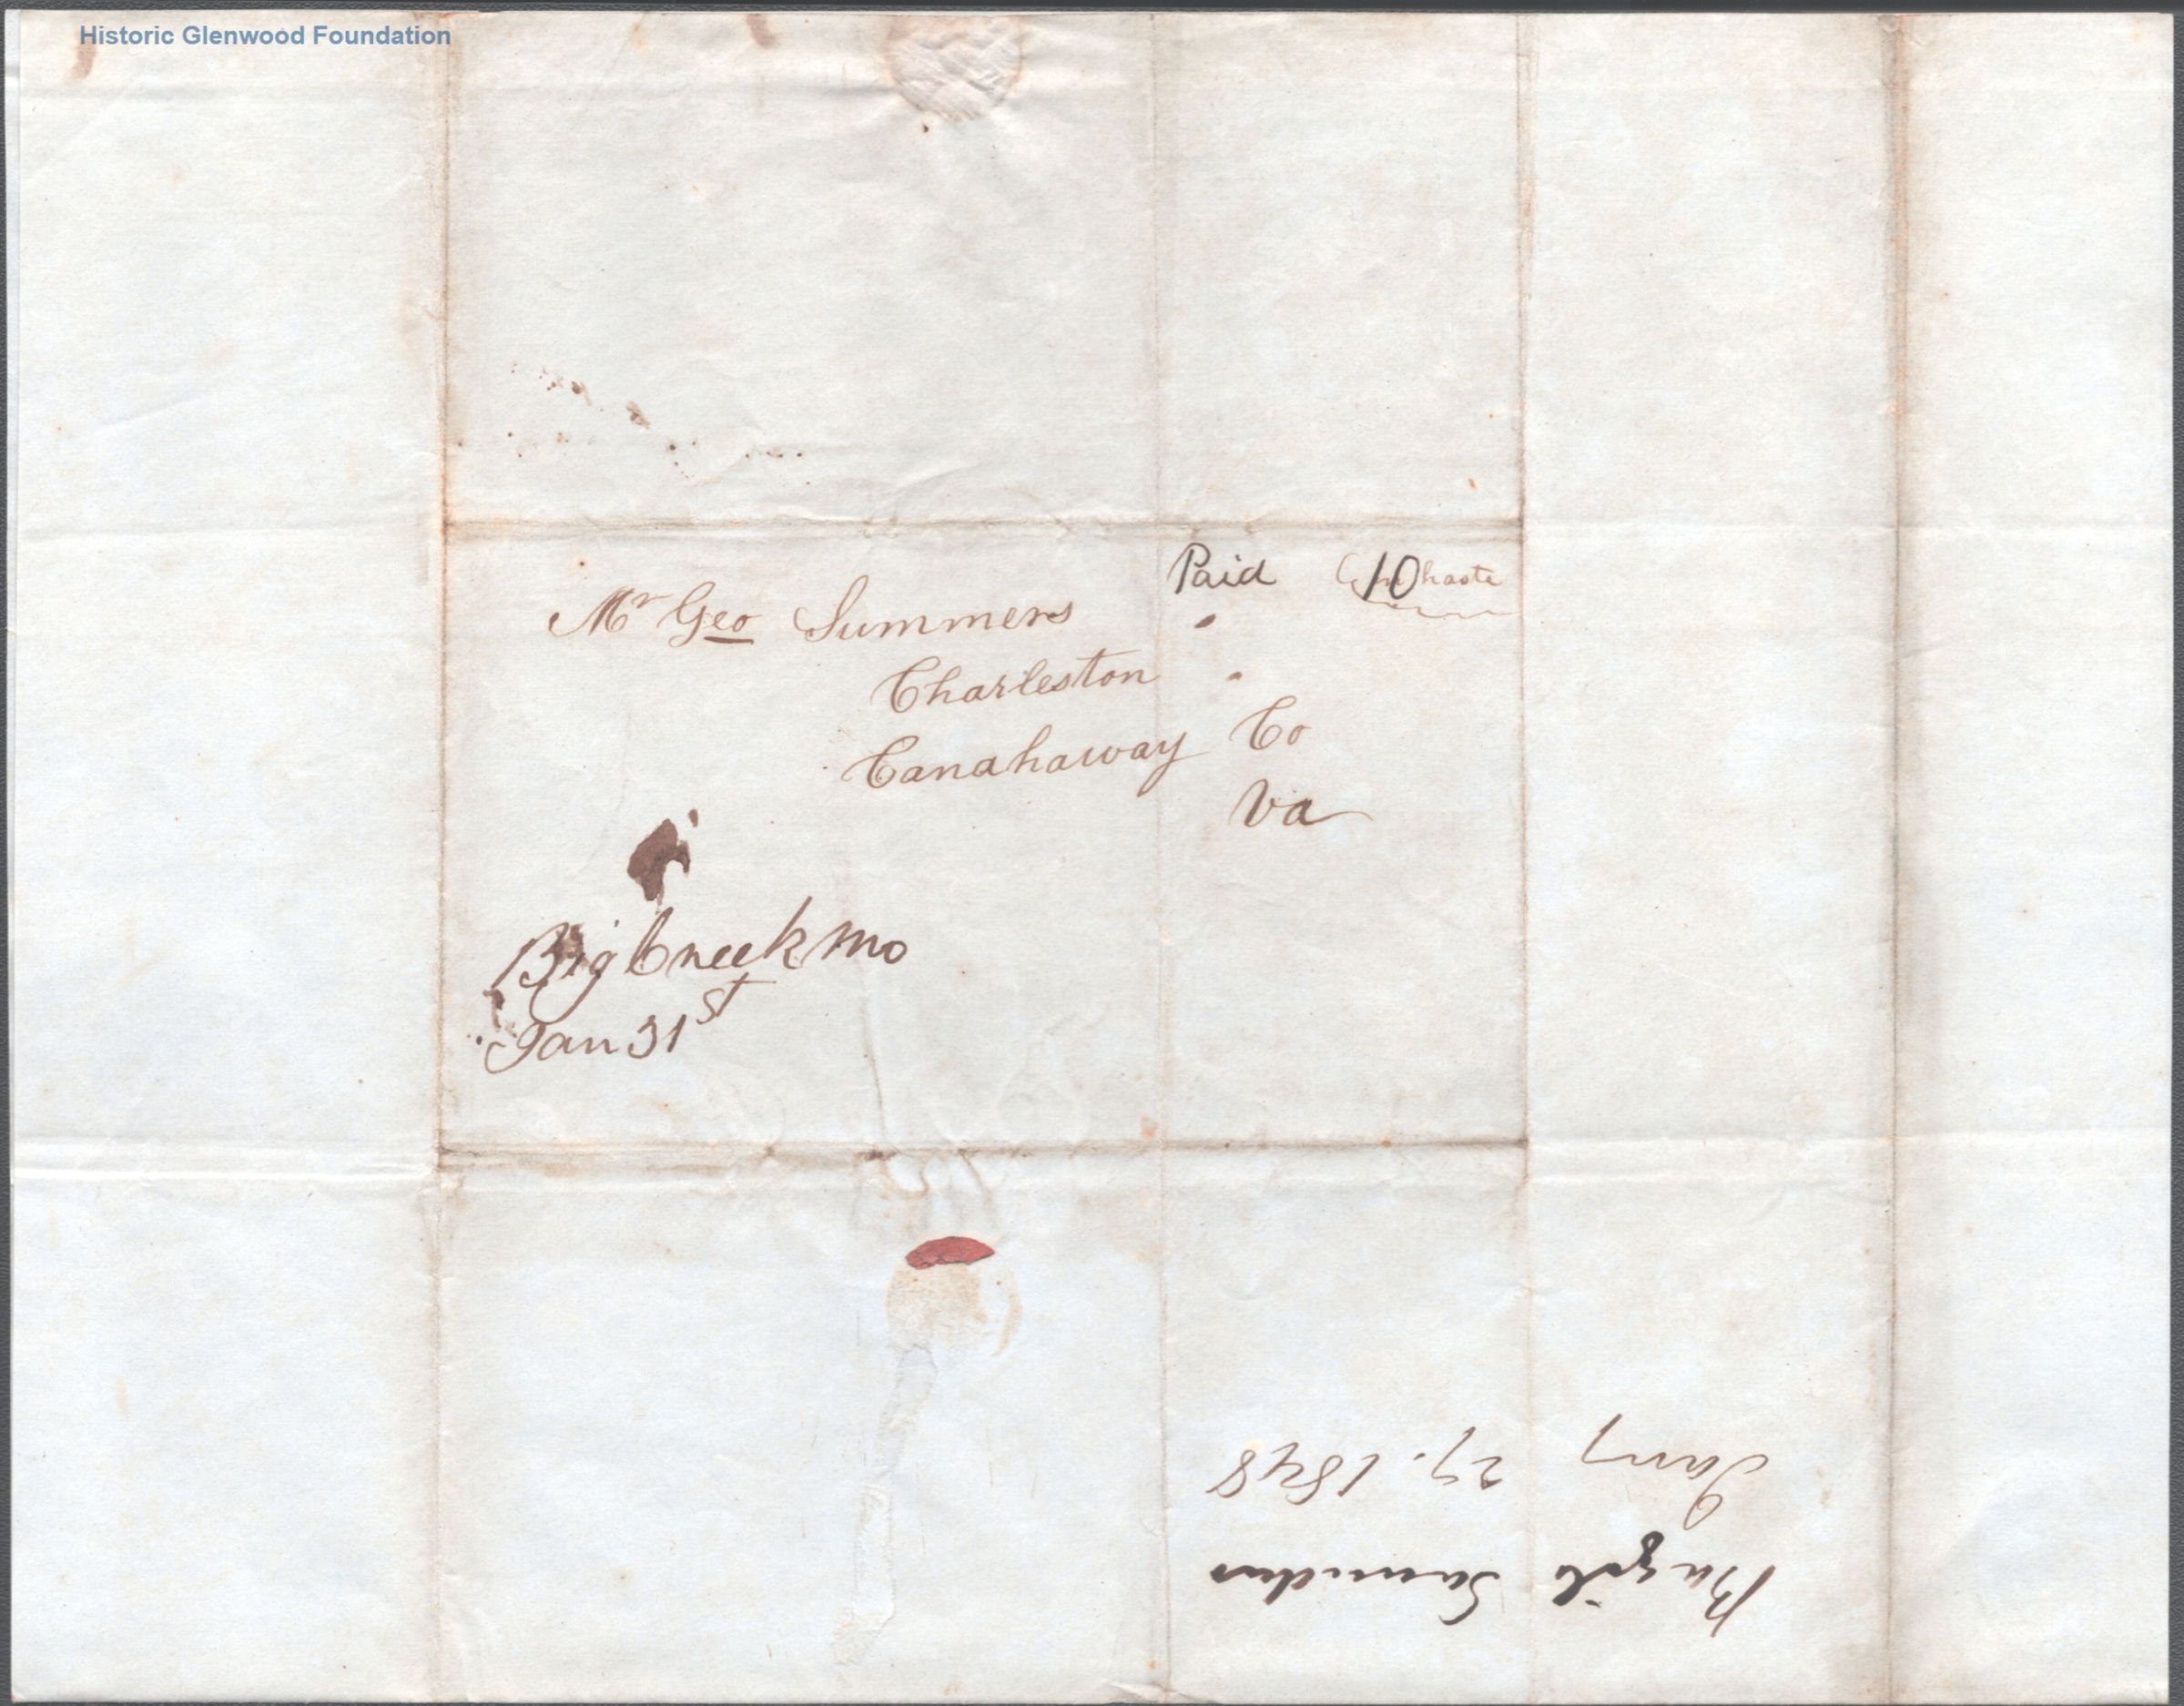 Historic Glenwood Foundation
Paid 10 In haste
Mr Geo Summers
Charleston
Canahaway Co
Va
Big Creek Mo
Jan 31st
Bazil Saunders
Jany 27. 1848